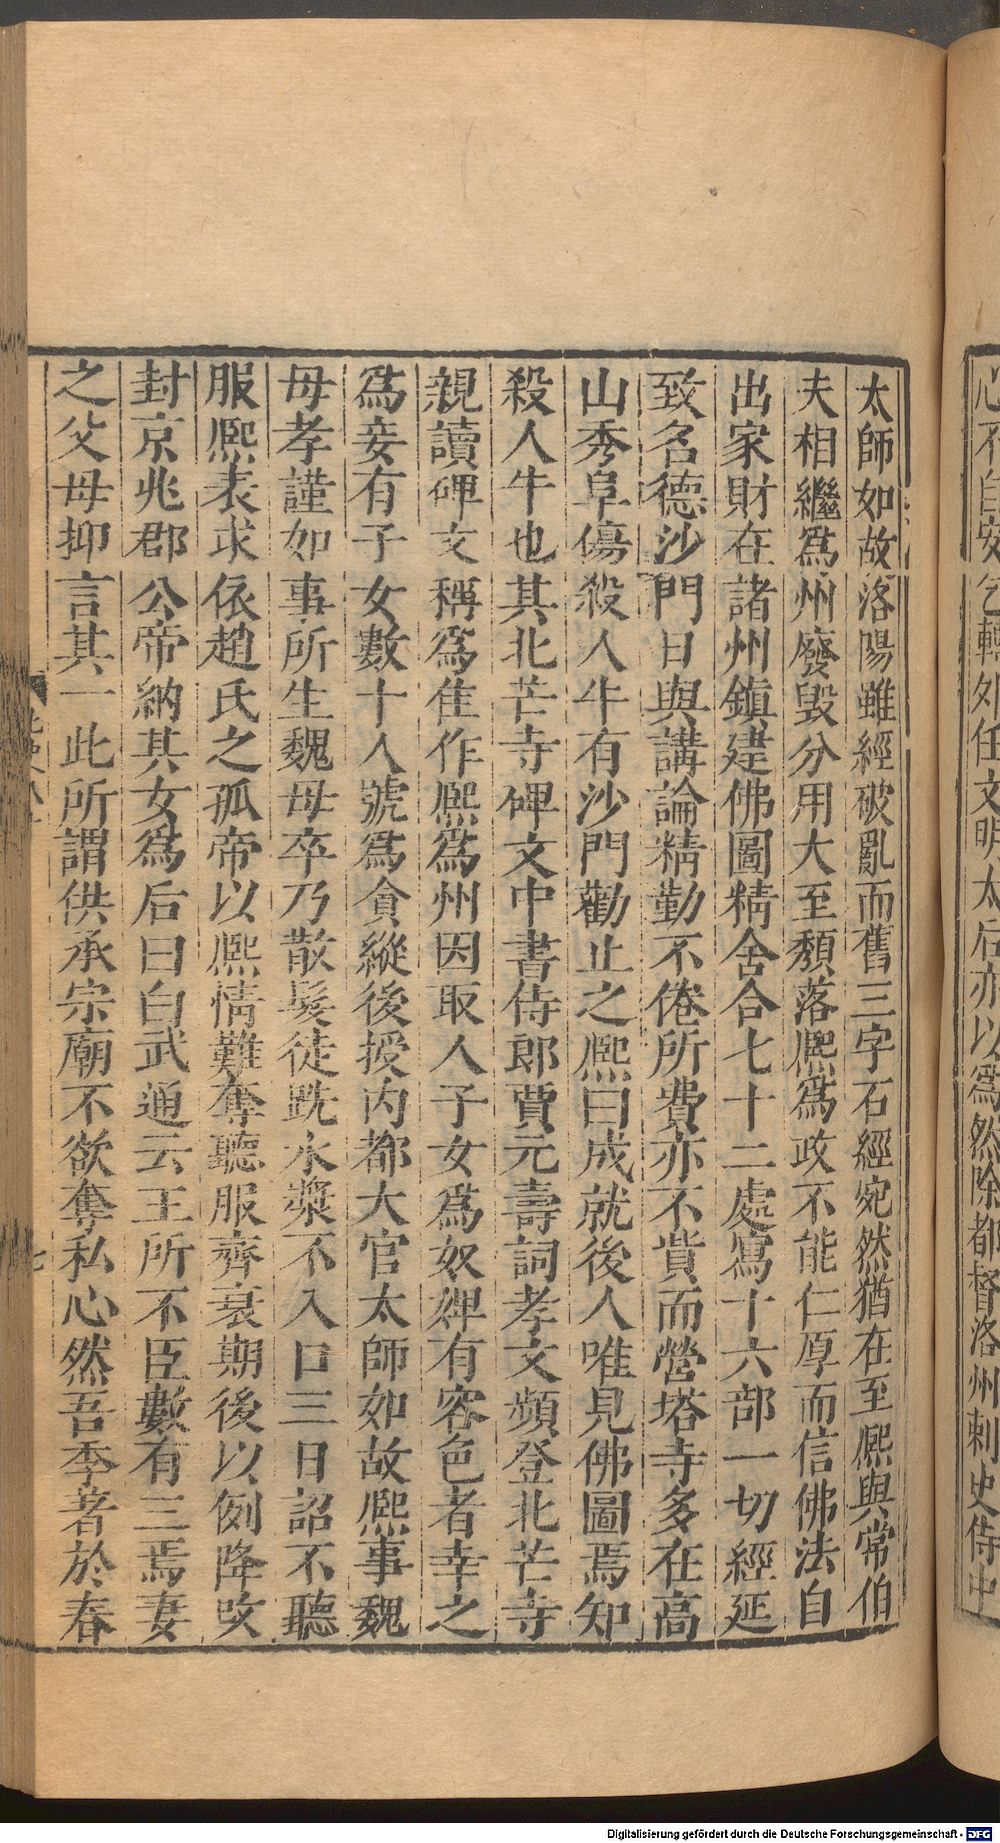 心不自安乞轉外任文明太后亦以爲然除都督洛州刺史侍中
太師如故洛陽雖經破亂而舊三字石經宛然猶在至熙與常伯
夫相繼爲州廢毀分用大至頽落熙爲政不能仁厚而信佛法自
出家財在諸州鎮建佛圖精舍合七十二處寫十六部一切經延
致名德沙門日與講論精勤不倦所費亦不貲而營塔寺多在高
山秀阜傷殺人牛有沙門勸止之熙曰成就後人唯見佛圖焉知
殺人牛也其北芒寺碑文中書侍郎賈元壽詞孝文頻登北芒寺
親讀碑文稱爲佳作熙爲州因取人子女爲奴婢有容色者幸之
爲妾有子女數十人號爲貪縱後授内都大官太師如故熙事魏
母孝謹如事所生魏母卒乃散髮徒跣水漿不入口三日詔不聽
服熙表求依趙氏之孤帝以熙情難奪聽服齊衰期後以例降改
封京兆郡公帝納其女爲后曰白武通云王所不臣數有三焉妻
之父母抑言其一此所謂供承宗廟不欲奪私心然吾季著於春
Digitalisierung gefördert durch die Deutsche Forschungsgemeinschaft - DFG